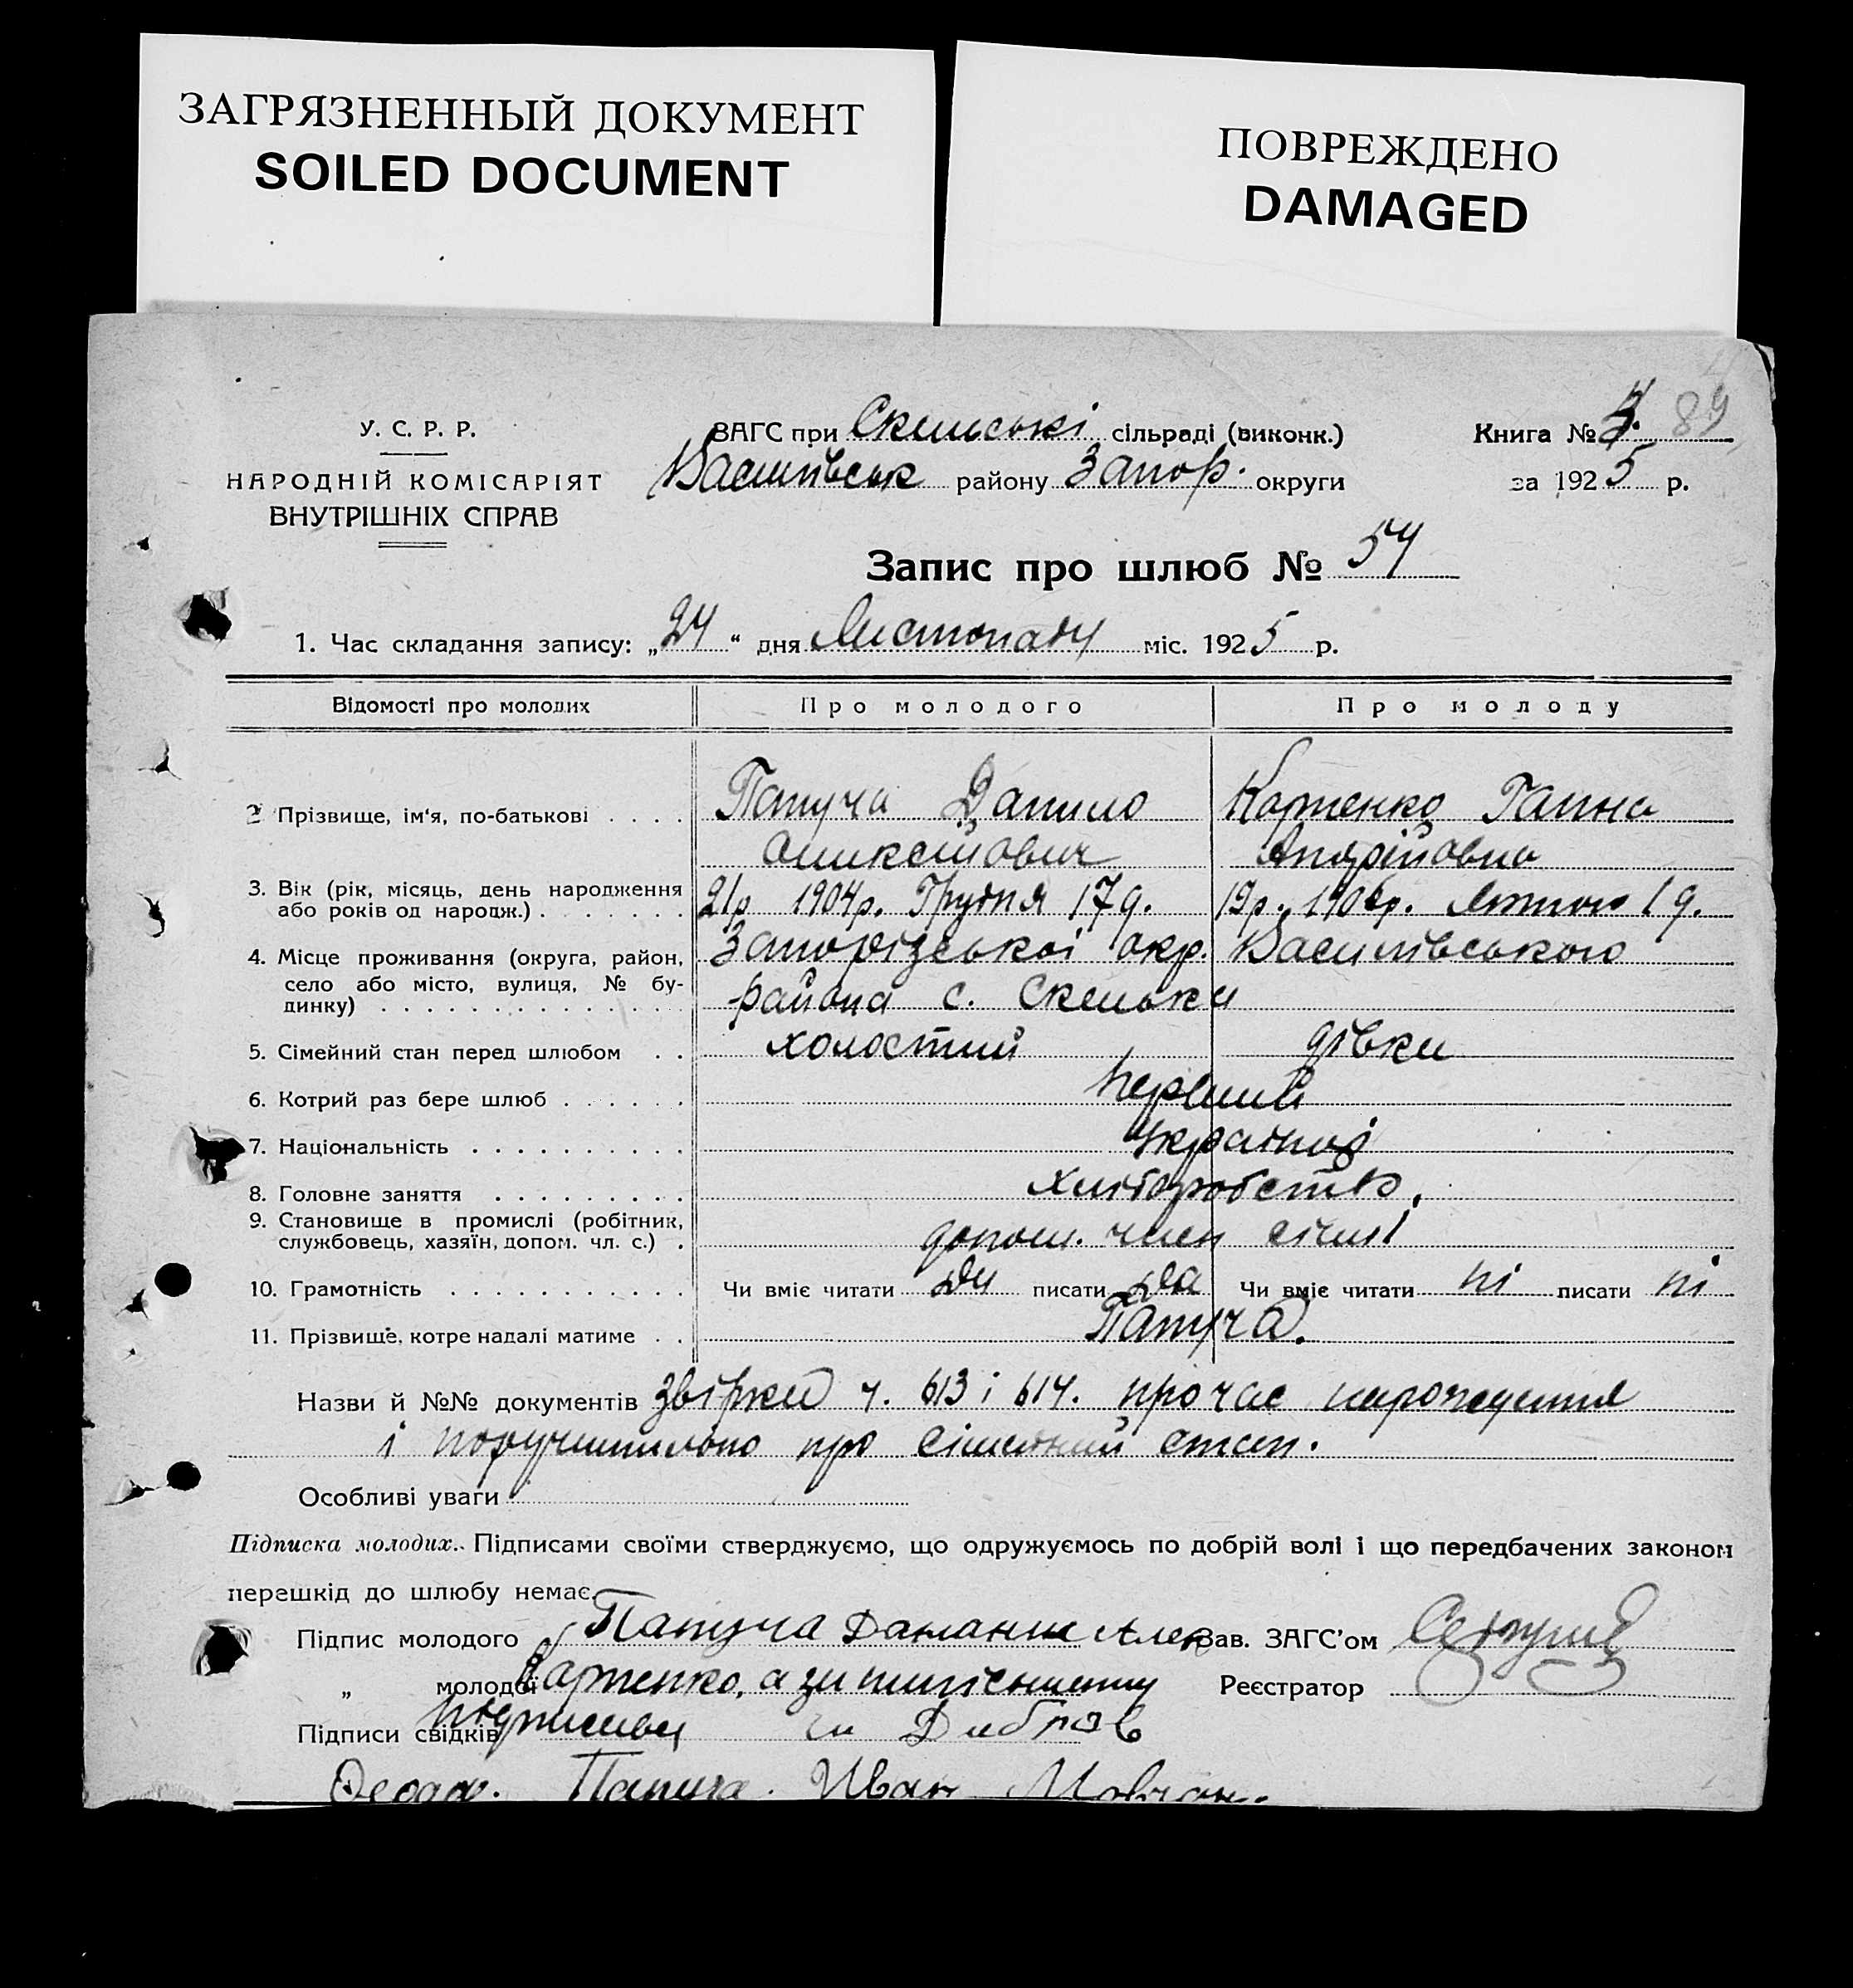 ЗАГРЯЗНЕННЫЙ ДОКУМЕНТ
SOILED DOCUMENT
ПОВРЕЖДЕНО
DAMAGED
У. С. Р. Р.
НАРОДНІЙ КОМІСАРІЯТ
ВНУТРІШНІХ СПРАВ
ЗАГС при Скельські сільраді (виконк.)
Василівськ району Запор. округи
Книга № 89
за 1925 р.
Запис про шлюб № 54
1. Час складання запису: „24“ дня Листопаду міс. 1925 р.
Відомості про молодих Про молодого Про молоду
2 Прізвище, ім'я, по-батькові . . . . Папуча Данило Карпенко Ганна
Оликсійович Андрійовна
3. Вік (рік, місяць, день народження 21р 1904р. Грудня 17д. 19р. 1906р. Лютого 1д.
або років од народж.) . . . . . . .
4. Місце проживання (округа, район, Запорізської окр. Василівського
село або місто, вулиця, № бу- района с. Скельки
динку) . . . . . . . . . . . . . .
5. Сімейний стан перед шлюбом . . холостий дівка
6. Котрий раз бере шлюб . . . . . . первий
7. Національність . . . . . . . . . . українці
8. Головне заняття . . . . . . . . . хліборобство.
9. Становище в промислі (робітник, допом. член сім'ї
службовець, хазяїн, допом. чл. с.) .
10. Грамотність . . . . . . . . . . . Чи вміє читати Да писати Да Чи вміє читати ні писати ні
11. Прізвище, котре надалі матиме . . Папуча.
Назви й №№ документів звірки ч. 613 і 614. про час нарождения
і поручительно про сімейний стан.
Особливі уваги
Підписка молодих.. Підписами своїми стверджуємо, що одружуємось по добрій волі і що передбачених законом
перешкід до шлюбу немає.
Підпис молодого Папуча Зав. ЗАГС'ом
„ молодої Карпенко, а за Реєстратор
Підписи свідків
Папуча. Иван Мовчан.